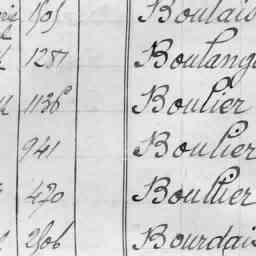 Boulais
1287 Boulang
1136 Boulier
941 Boulier
470 Boullier
2506 Bourdais